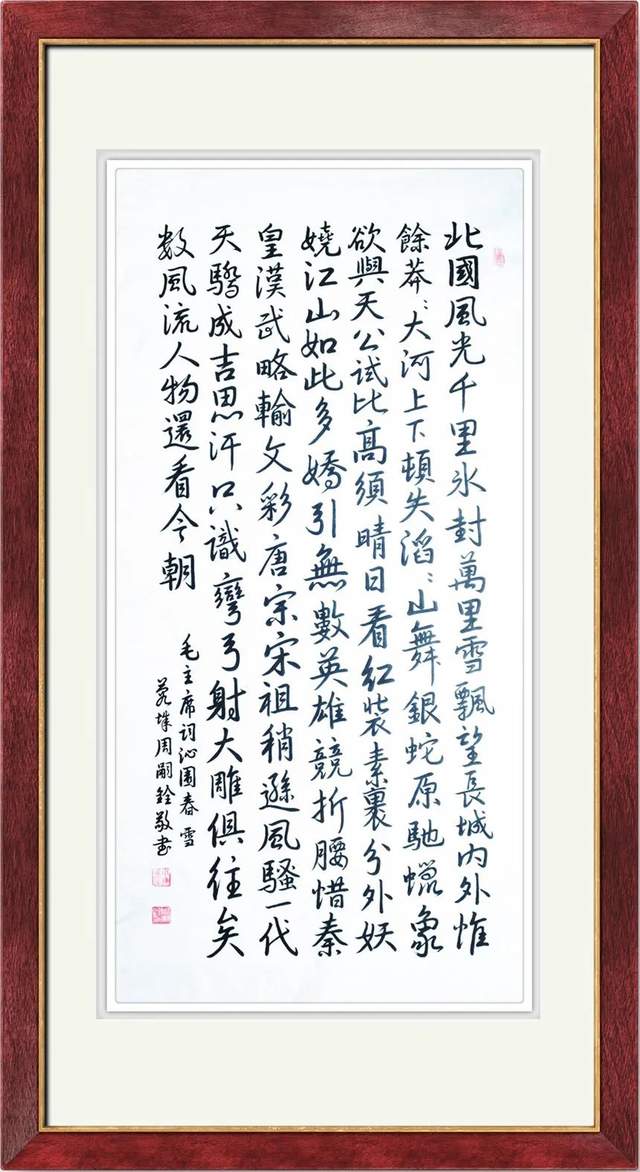 北國風光千里氷封萬里雪飄望長城内外惟
餘莽〻大河上下頓失滔〻山舞銀蛇原馳蠟象
欲與天公試比髙須晴日看紅裝素裹分外妖
嬈江山如此多嬌引無數英雄競折腰惜秦
皇漢武略輸文彩唐宗宋祖稍遜風騷一代
天驕成吉思汗只識彎弓射大雕俱往矣
数風流人物還看今朝
毛主席词沁園春雪
周嗣銓敬书